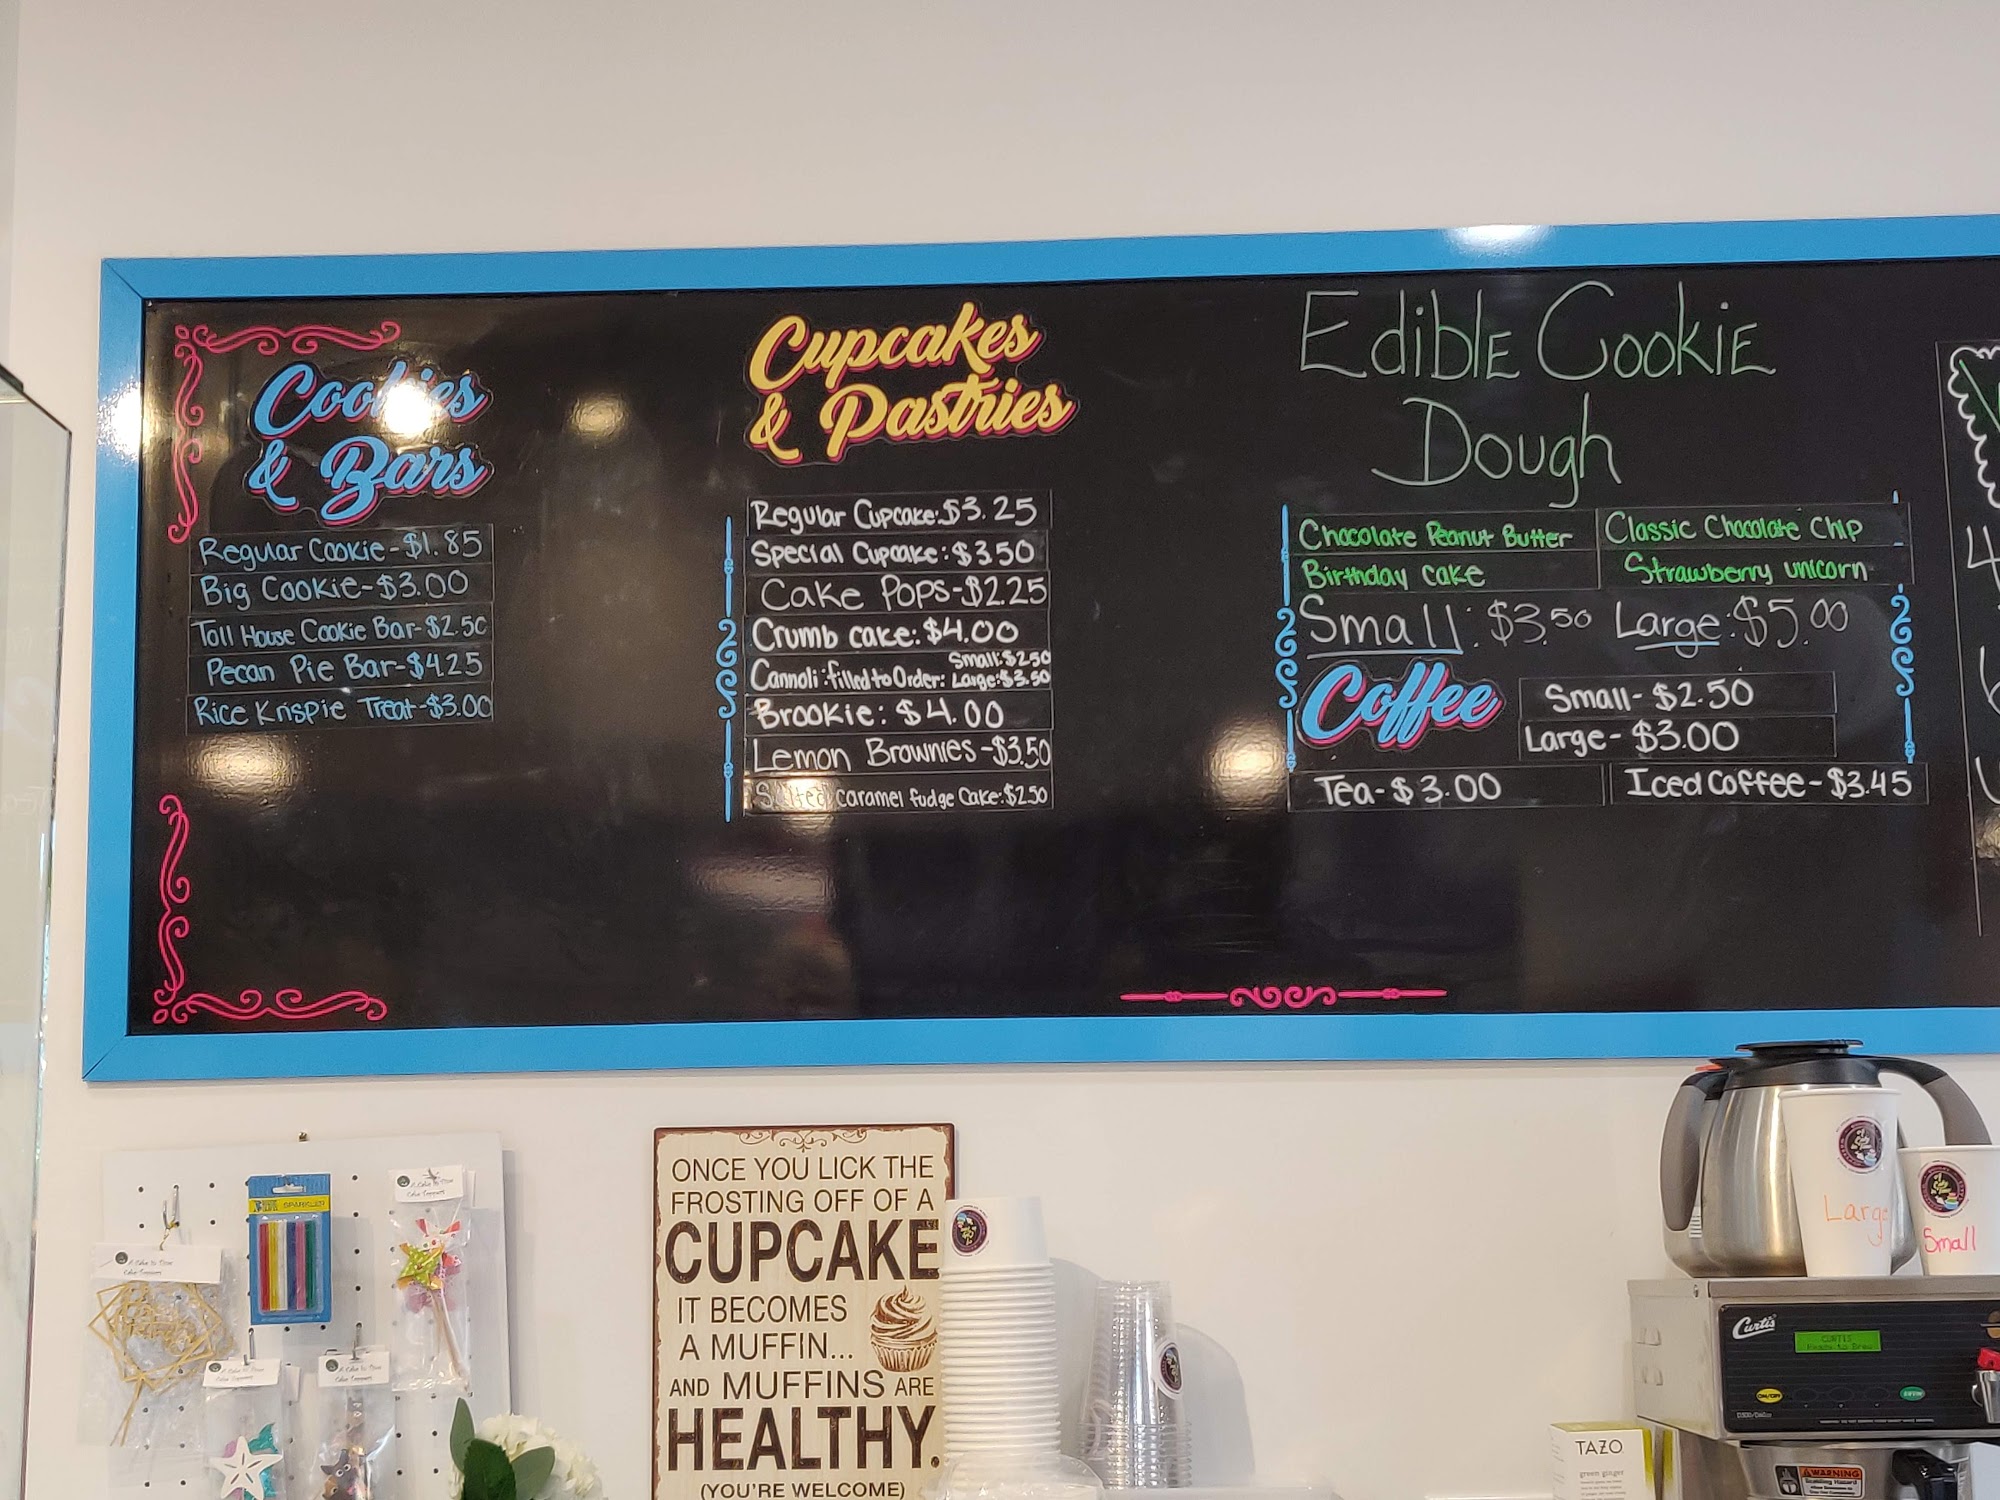 Cookies
& Bars
Regular Cookie-$1.85
Big Cookie-$3.00
Toll House Cookie Bar-$2.50
Pecan Pie Bar-$4.25
Rice Krispie Treat-$3.00
Cupcakes
& Pastries
Regular Cupcake:$3.25
Special Cupcake: $3.50
Cake Pops-$2.25
Crumb cake: $4.00
Cannoli: filled to Order: Small:$2.50
Large:$3.50
Brookie: $4.00
Lemon Brownies-$3.50
Salted caramel fudge Cake:$2.50
Edible Cookie
Dough
Chocolate Peanut Butter
Classic Chocolate Chip
Birthday cake
Strawberry unicorn
Small: $3.50 Large: $5.00
Coffee
Small-$2.50
Large-$3.00
Tea-$3.00
Iced Coffee-$3.45
ONCE YOU LICK THE
FROSTING OFF OF A
CUPCAKE
IT BECOMES
A MUFFIN...
AND MUFFINS ARE
HEALTHY.
(YOU'RE WELCOME)
SPARKLER
Large
Small
Curtis
CURTIS
Ready to Brew
ON/OFF
TAZO
green ginger
WARNING